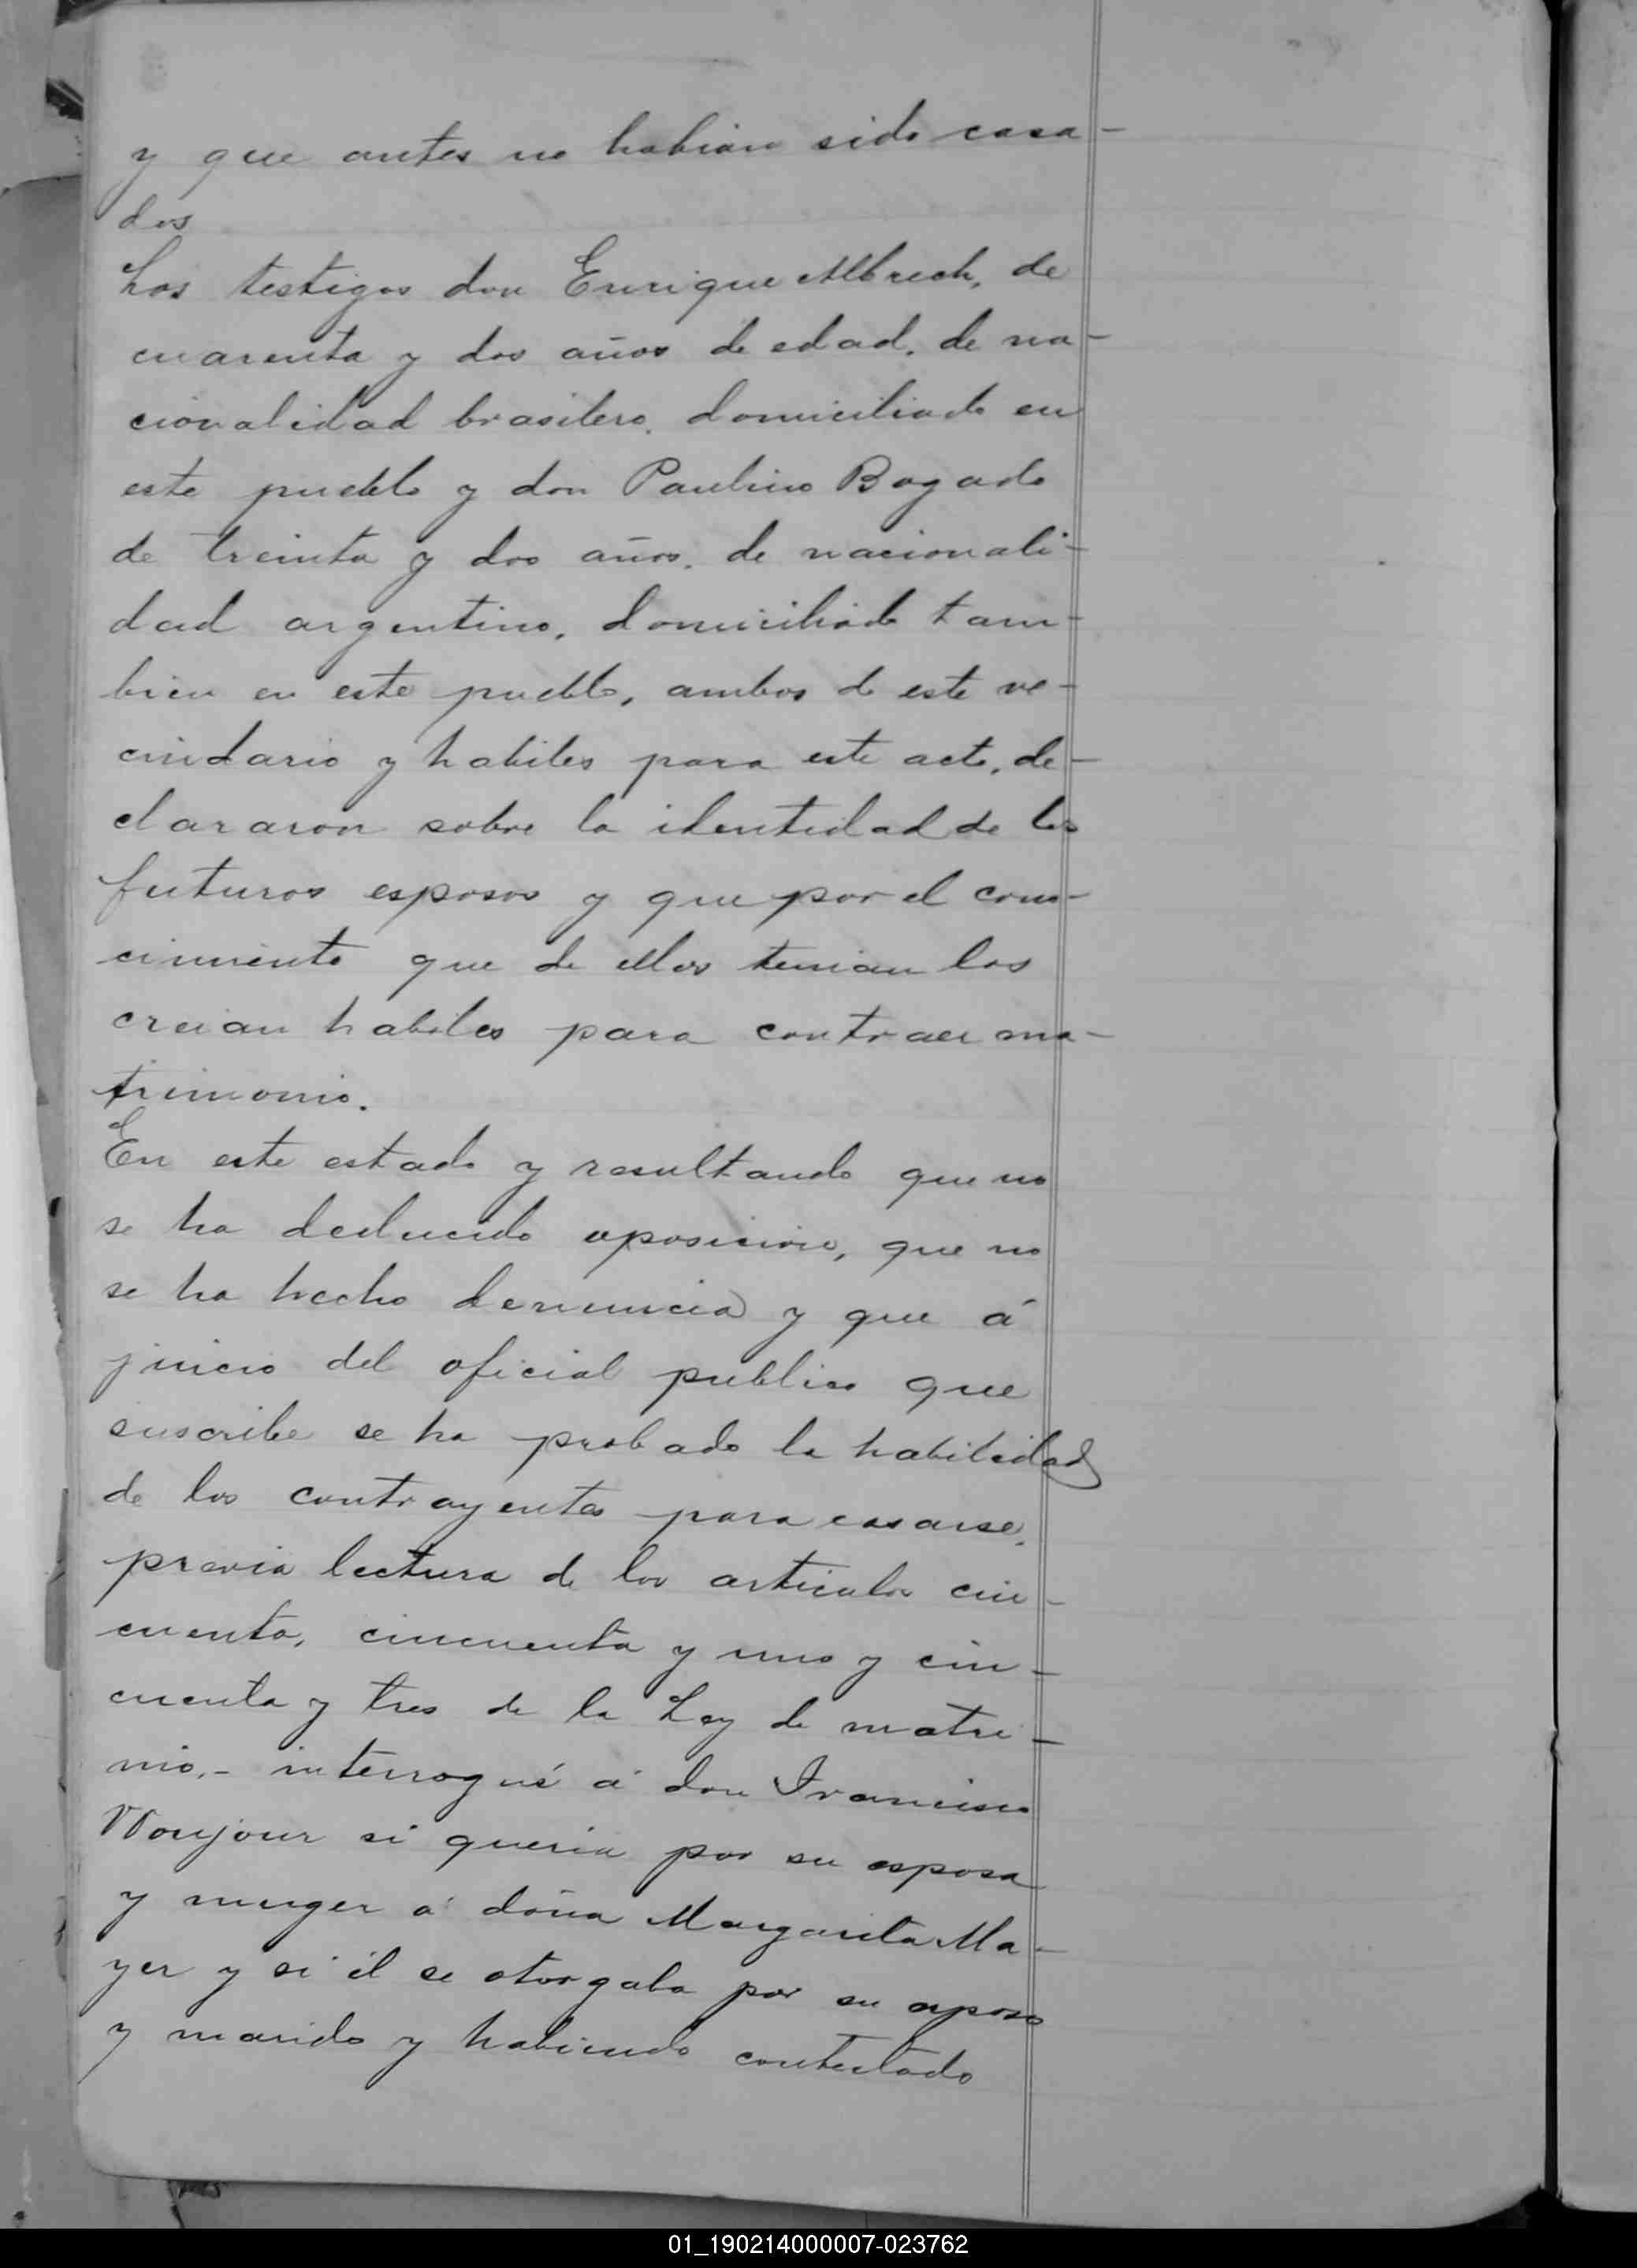 y que antes no habian sido casa-
dos
Los testigos don Enrique Albrech, de
cuarenta y dos años de edad, de na-
cionalidad brasilero, domiciliado en
este pueblo y don Paulino Bogado
de treinta y dos años, de nacionali-
dad argentino, domiciliado tam-
bien en este pueblo, ambos de este ve-
cindario y habiles para este acto, de-
clararon sobre la identidad de los
futuros esposos y que por el cono-
cimiento que de ellos tenian los
creian habiles para contraer ma-
trimonio.
En este estado y resultando que no
se ha deducido oposicion, que no
se ha hecho denuncia y que á
juicio del oficial publico que
suscribe se ha probado la habilidad
de los contrayentes para casarse,
previa lectura de los articulos cin-
cuenta, cincuenta y uno y cin-
cuenta y tres de la Ley de matri-
nio,- interrogué á don Francisco
Monjour si queria por su esposa
y muger a doña Margarita Ma-
yer y si él se otorgaba por su esposo
y marido y habiendo contestado
01_190214000007-023762